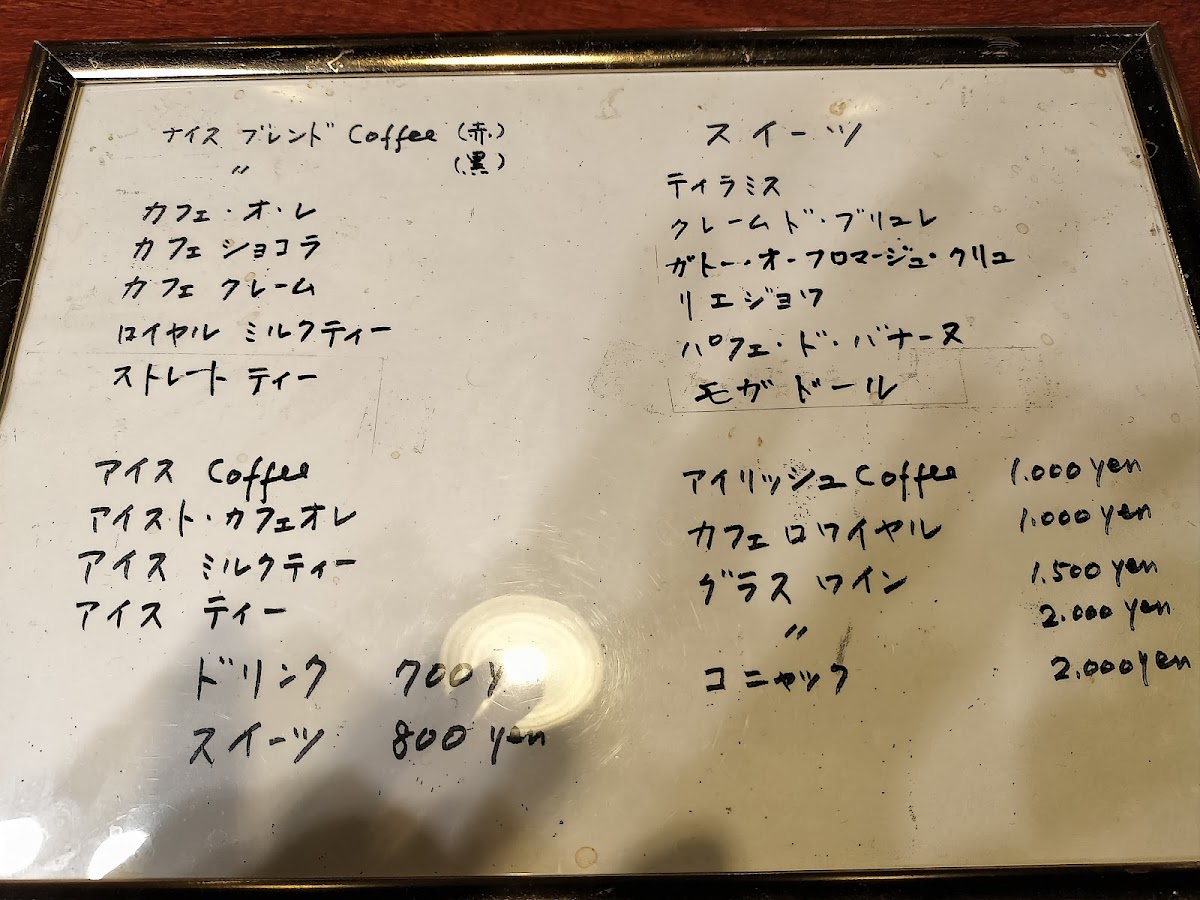 ナイス ブレンド Coffee (赤)
〃 (黒)
カフェ・オ・レ
カフェ ショコラ
カフェ クレーム
ロイヤル ミルクティー
ストレート ティー
アイス Coffee
アイスト・カフェオレ
アイス ミルクティー
アイス ティー
ドリンク 700y
スイーツ 800 yen
スイーツ
ティラミス
クレームド・ブリュレ
ガトー・オ・フロマージュ・クリュ
リエジョワ
パフェ・ド・バナーヌ
モガドール
アイリッシュCoffee 1.000yen
カフェ ロワイヤル 1.000yen
グラス ワイン 1.500yen
〃 2.000yen
コニャック 2.000yen